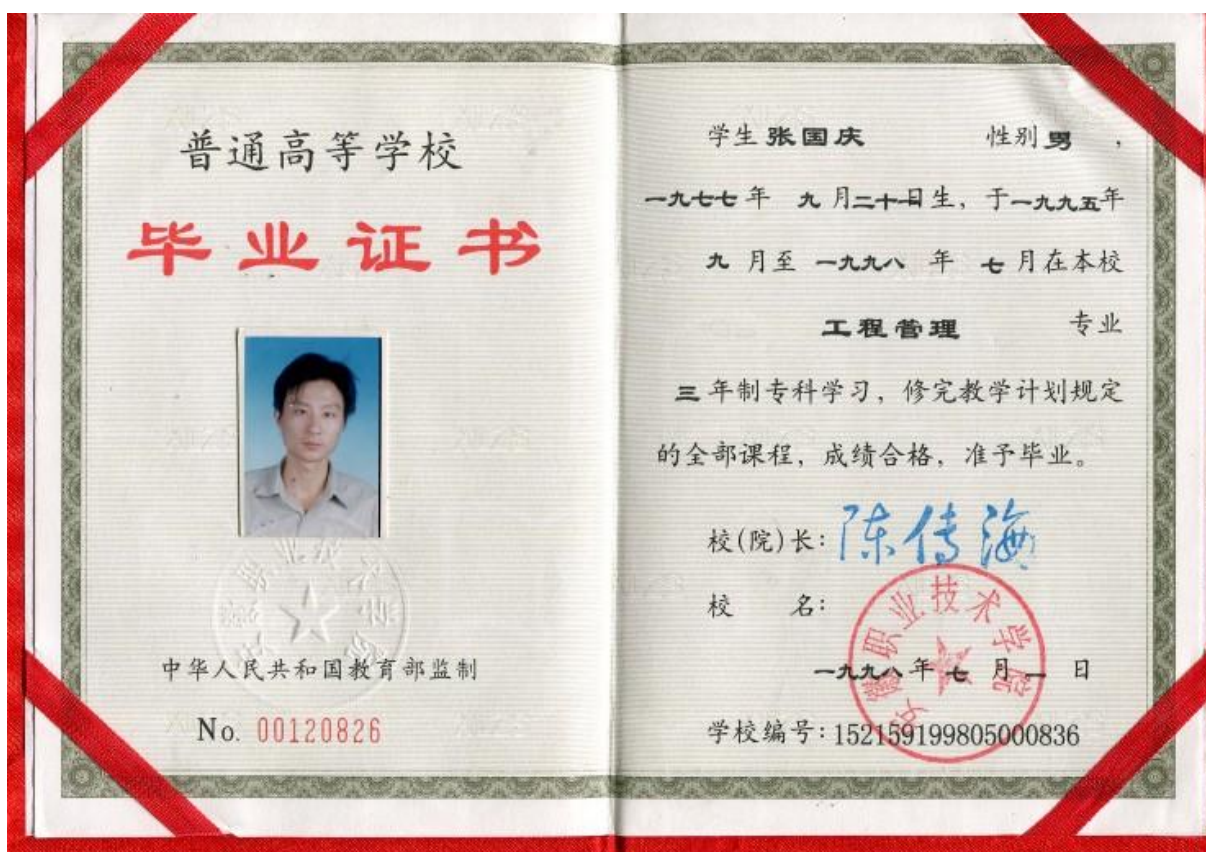 普通高等学校
毕业证书
中华人民共和国教育部监制
No. 00120826
学生 张国庆 性别 男 ,
一九七七 年 九 月 二十 日生, 于 一九九五 年
九 月至 一九九八 年 七 月在本校
工程管理 专业
三 年制专科学习, 修完教学计划规定
的全部课程, 成绩合格, 准予毕业。
校(院)长: 陈传海
校 名:
安徽职业技术学院
一九九八 年 七 月 一 日
学校编号: 152159199805000836